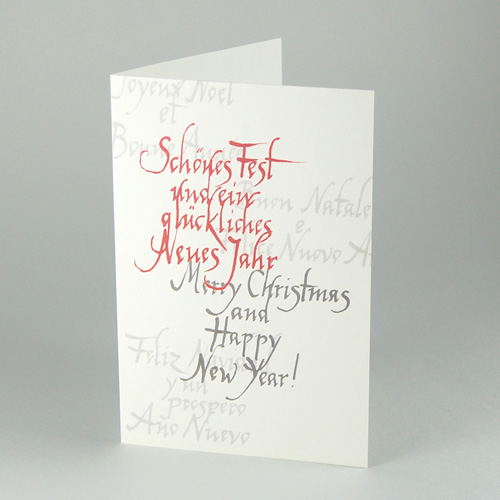 Joyeux Noël
et
Bonne Année
Schönes Fest
und ein
glückliches
Neues Jahr
Buon Natale
e
Felice Nuovo A
Merry Christmas
and
Happy
New Year!
Feliz Navidad
y un
prospero
Año Nuevo